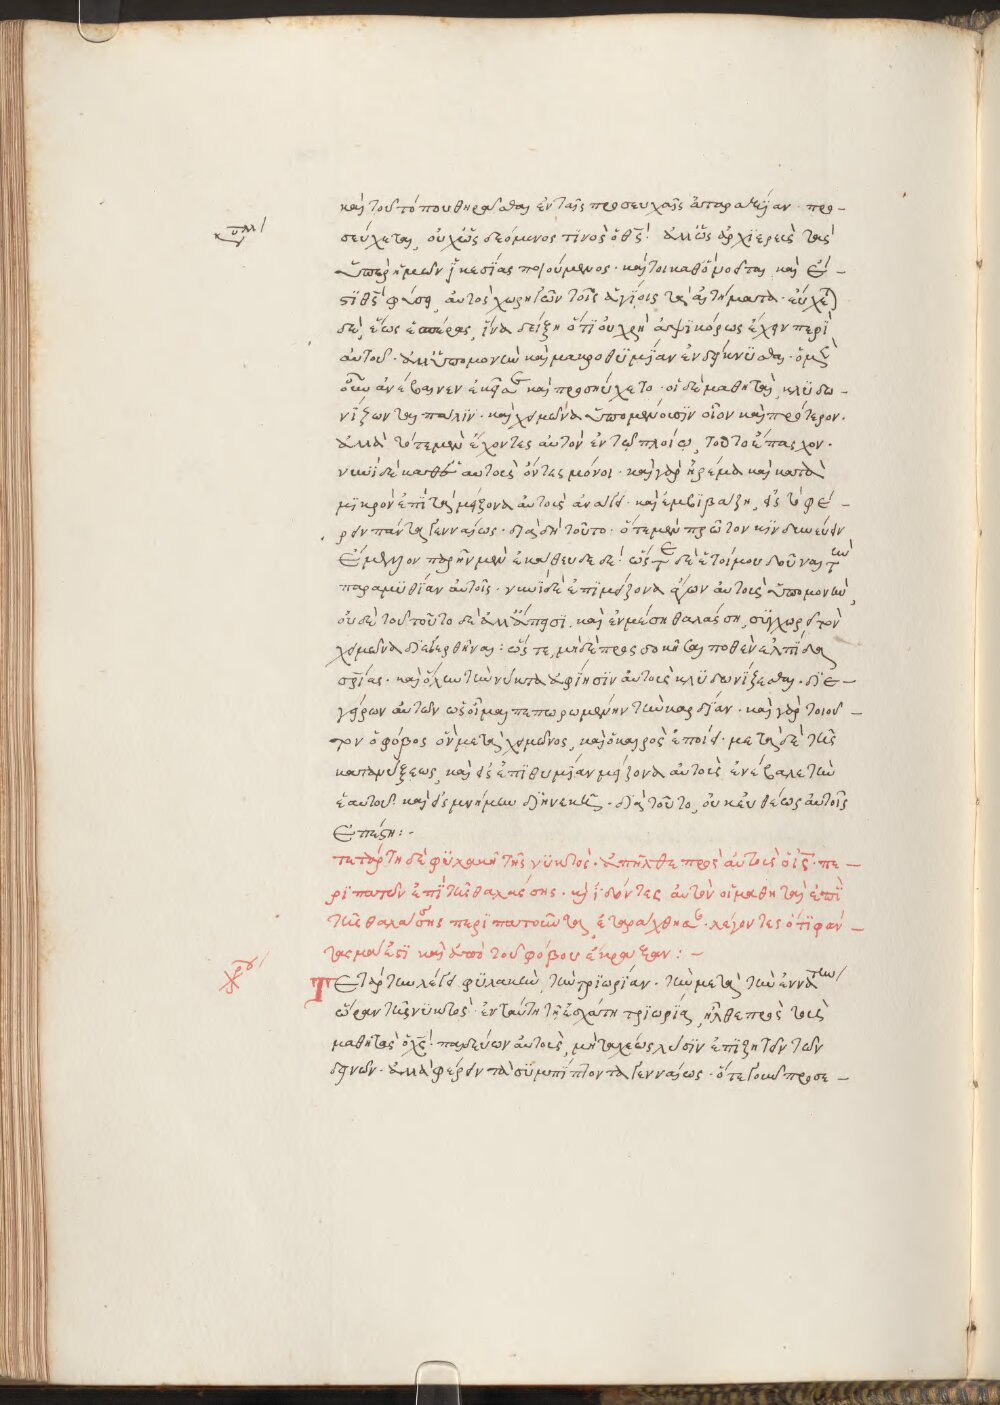 καὶ τοῦ τόπου θηρᾶσθαι ἐν ταῖς προσευχαῖς ἀταραξίαν· προ-
σεύχεται, οὐχ ὡς δεόμενος τινὸς ὁ θς· ἀλλ' ὡς ἀρχιερεὺς τὰς
ὑπὲρ ἡμῶν ἱκεσίας ποιούμενος· καίτοι καθὸ
φύσει, αὐτὸς χορηγῶν τοῖς ἁγίοις τὰ αἰτήματα· εὔχεται
δὲ, ἕως ἑσπέρας, ἵνα δείξη ὅτι οὐ χρὴ ἁψικόρως ἔχειν περὶ
αὐτοῦ· ἀλλ' ὑπομονὴν καὶ μακροθυμίαν ἐνδείκνυσθαι· ὁ μὲν
οὖν ἀνέβαινεν ἐκεῖσε καὶ προσηύχετο· οἱ δὲ μαθηταὶ, κλυδω-
νίζονται πάλιν· καὶ χειμῶνα ὑπομένουσιν οἷον καὶ πρότερον·
ἀλλὰ τότε μὲν ἔχοντες αὐτὸν ἐν τῷ πλοίω, τοῦτο ἔπασχον·
νυνὶ δὲ καθ' αὐτοὺς ὄντες μόνοι· καὶ γὰρ ἠρέμα καὶ κατὰ
μικρὸν ἐπὶ τὰ μείζονα αὐτοὺς ἀνάγει· καὶ ἐμβιβάζη, εἰς τὸ φέ-
ρειν πάντα γενναίως· διὰ δὴ τοῦτο· ὅτε μὲν πρῶτον κινδυνεύειν
ἔμελλον παρῆν μὲν ἐκάθευδε δέ· ὥστε δὲ ἑτοίμου δοῦναι τὴν
παραμυθίαν αὐτοῖς· νυνὶ δὲ ἐπὶ μείζονα ἄγων αὐτοὺς ὑπομονὴν,
οὐδὲ τοῦτο δὲ ἀλλ' ἄπεισι, καὶ ἐν μέση θαλάσση, συγχωρεῖ τὸν
χειμῶνα διεγερθῆναι: ὥστε, μηδὲ προσδοκῆσαι ποθὲν ἐλπίδα
σρίας· καὶ ὅλην τὴν νύκτα ἀφίησιν αὐτοὺς κλυδωνίζεσθαι· διε-
γείρων αὐτῶν ὡς οἶμαι πεπωρωμένην τὴν καρδίαν· καὶ γὰρ τοιοῦ-
τον ὁ φόβος ὃν μετὰ χειμῶνος, καὶ ὁ καιρὸς ἐποίει· μετὰ δὲ τῆς
κατανύξεως, καὶ εἰς ἐπιθυμίαν μείζονα αὐτοὺς ἐνέβαλε τὴν
ἑαυτοῦ· καὶ εἰς μνήμην διηνεκῆ· διὰ τοῦτο, οὐκ εὐθέως αὐτοῖς
ἐπέστη:·
τετάρτη δὲ φυλακῆ τῆς νυκτὸς· ἀπῆλθε πρὸς αὐτοὺς ὁ ις· πε-
ριπατῶν ἐπὶ τῆς θαλάσσης· καὶ ἰδόντες αὐτὸν οἱ μαθηταὶ ἐπὶ
τῆς θαλάσσης περιπατοῦντα, ἐταράχθησαν· λέγοντες ὅτι φάν-
τασμά ἐστι καὶ ἀπὸ τοῦ φόβου ἔκραξαν: -
Τετάρτην λέγει φυλακὴν, τὴν τριωρίαν· τὴν μετὰ τὴν ἐννάτην
ὥραν τῆς νυκτὸς· ἐν ταύτη τῆ ἐσχάτη τριωρία, ἦλθε πρὸς τοὺς
μαθητὰς ὁ χς· παιδεύων αὐτοὺς, μὴ ταχέως λύσιν ἐπιζητεῖν τῶν
δεινῶν· ἀλλὰ φέρειν τὰ συμπίπτοντα γενναίως· ὅτε γοῦν προσε-